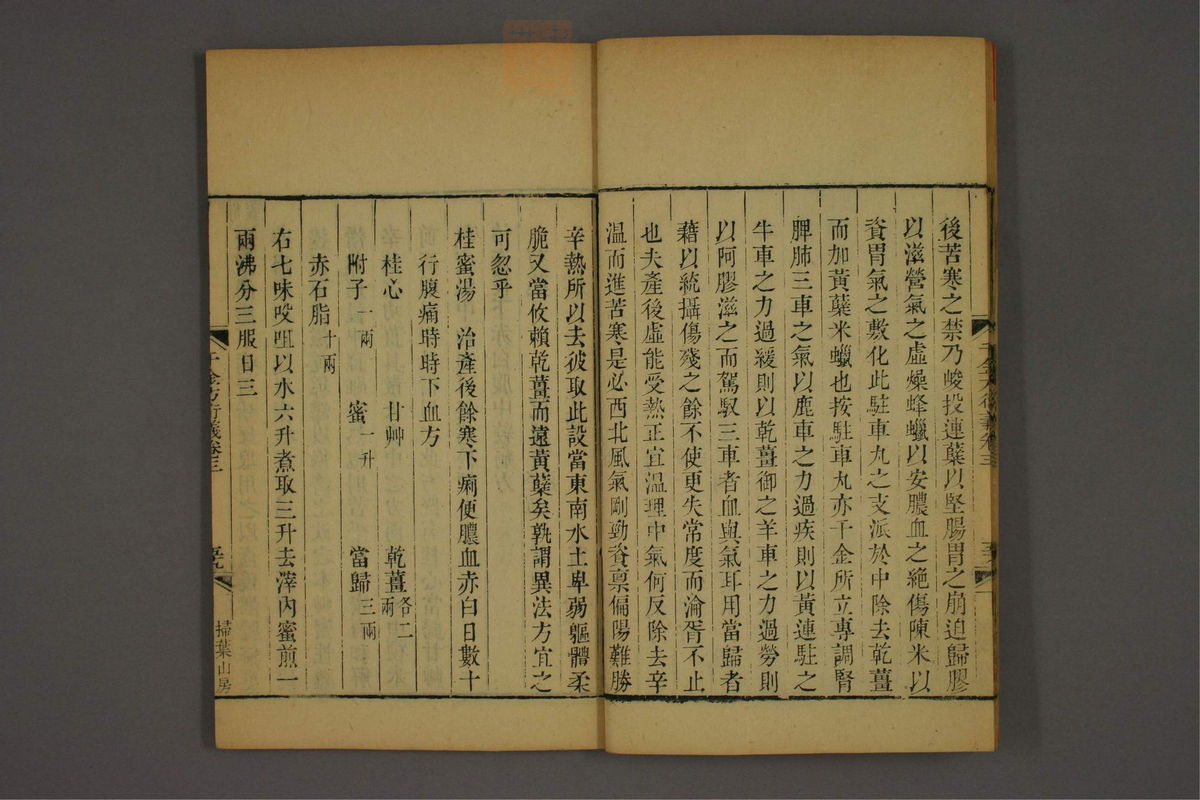 後苦寒之禁乃峻投連蘗以堅腸胃之崩迫歸膠
以滋營氣之虛燥蜂蠟以安膿血之絶傷陳米以
資胃氣之敷化此駐車丸之支派於中除去乾薑
而加黃蘗米蠟也按駐車丸亦千金所立專調腎
脾肺三車之氣以鹿車之力過疾則以黃連駐之
牛車之力過緩則以乾薑御之羊車之力過勞則
以阿膠滋之而駕馭三車者血與氣耳用當歸者
藉以統攝傷殘之餘不使更失常度而淪胥不止
也夫產後虛能受熱正宜溫理中氣何反除去辛
温而進苦寒是必西北風氣剛勁資禀偏陽難勝
千金方衍義卷三
辛熱所以去彼取此設當東南水土卑弱軀體柔
脆又當攸賴乾薑而遠黃蘗矣孰謂異法方宜之
可忽乎
桂蜜湯 治產後餘寒下痢便膿血赤白日數十
行腹痛時時下血方
桂心 甘艸 乾薑各二兩
附子一兩 蜜一升 當歸三兩
赤石脂十兩
右七味㕮咀以水六升煮取三升去滓內蜜煎一
兩沸分三服日三
千金方衍義卷三
掃葉山房